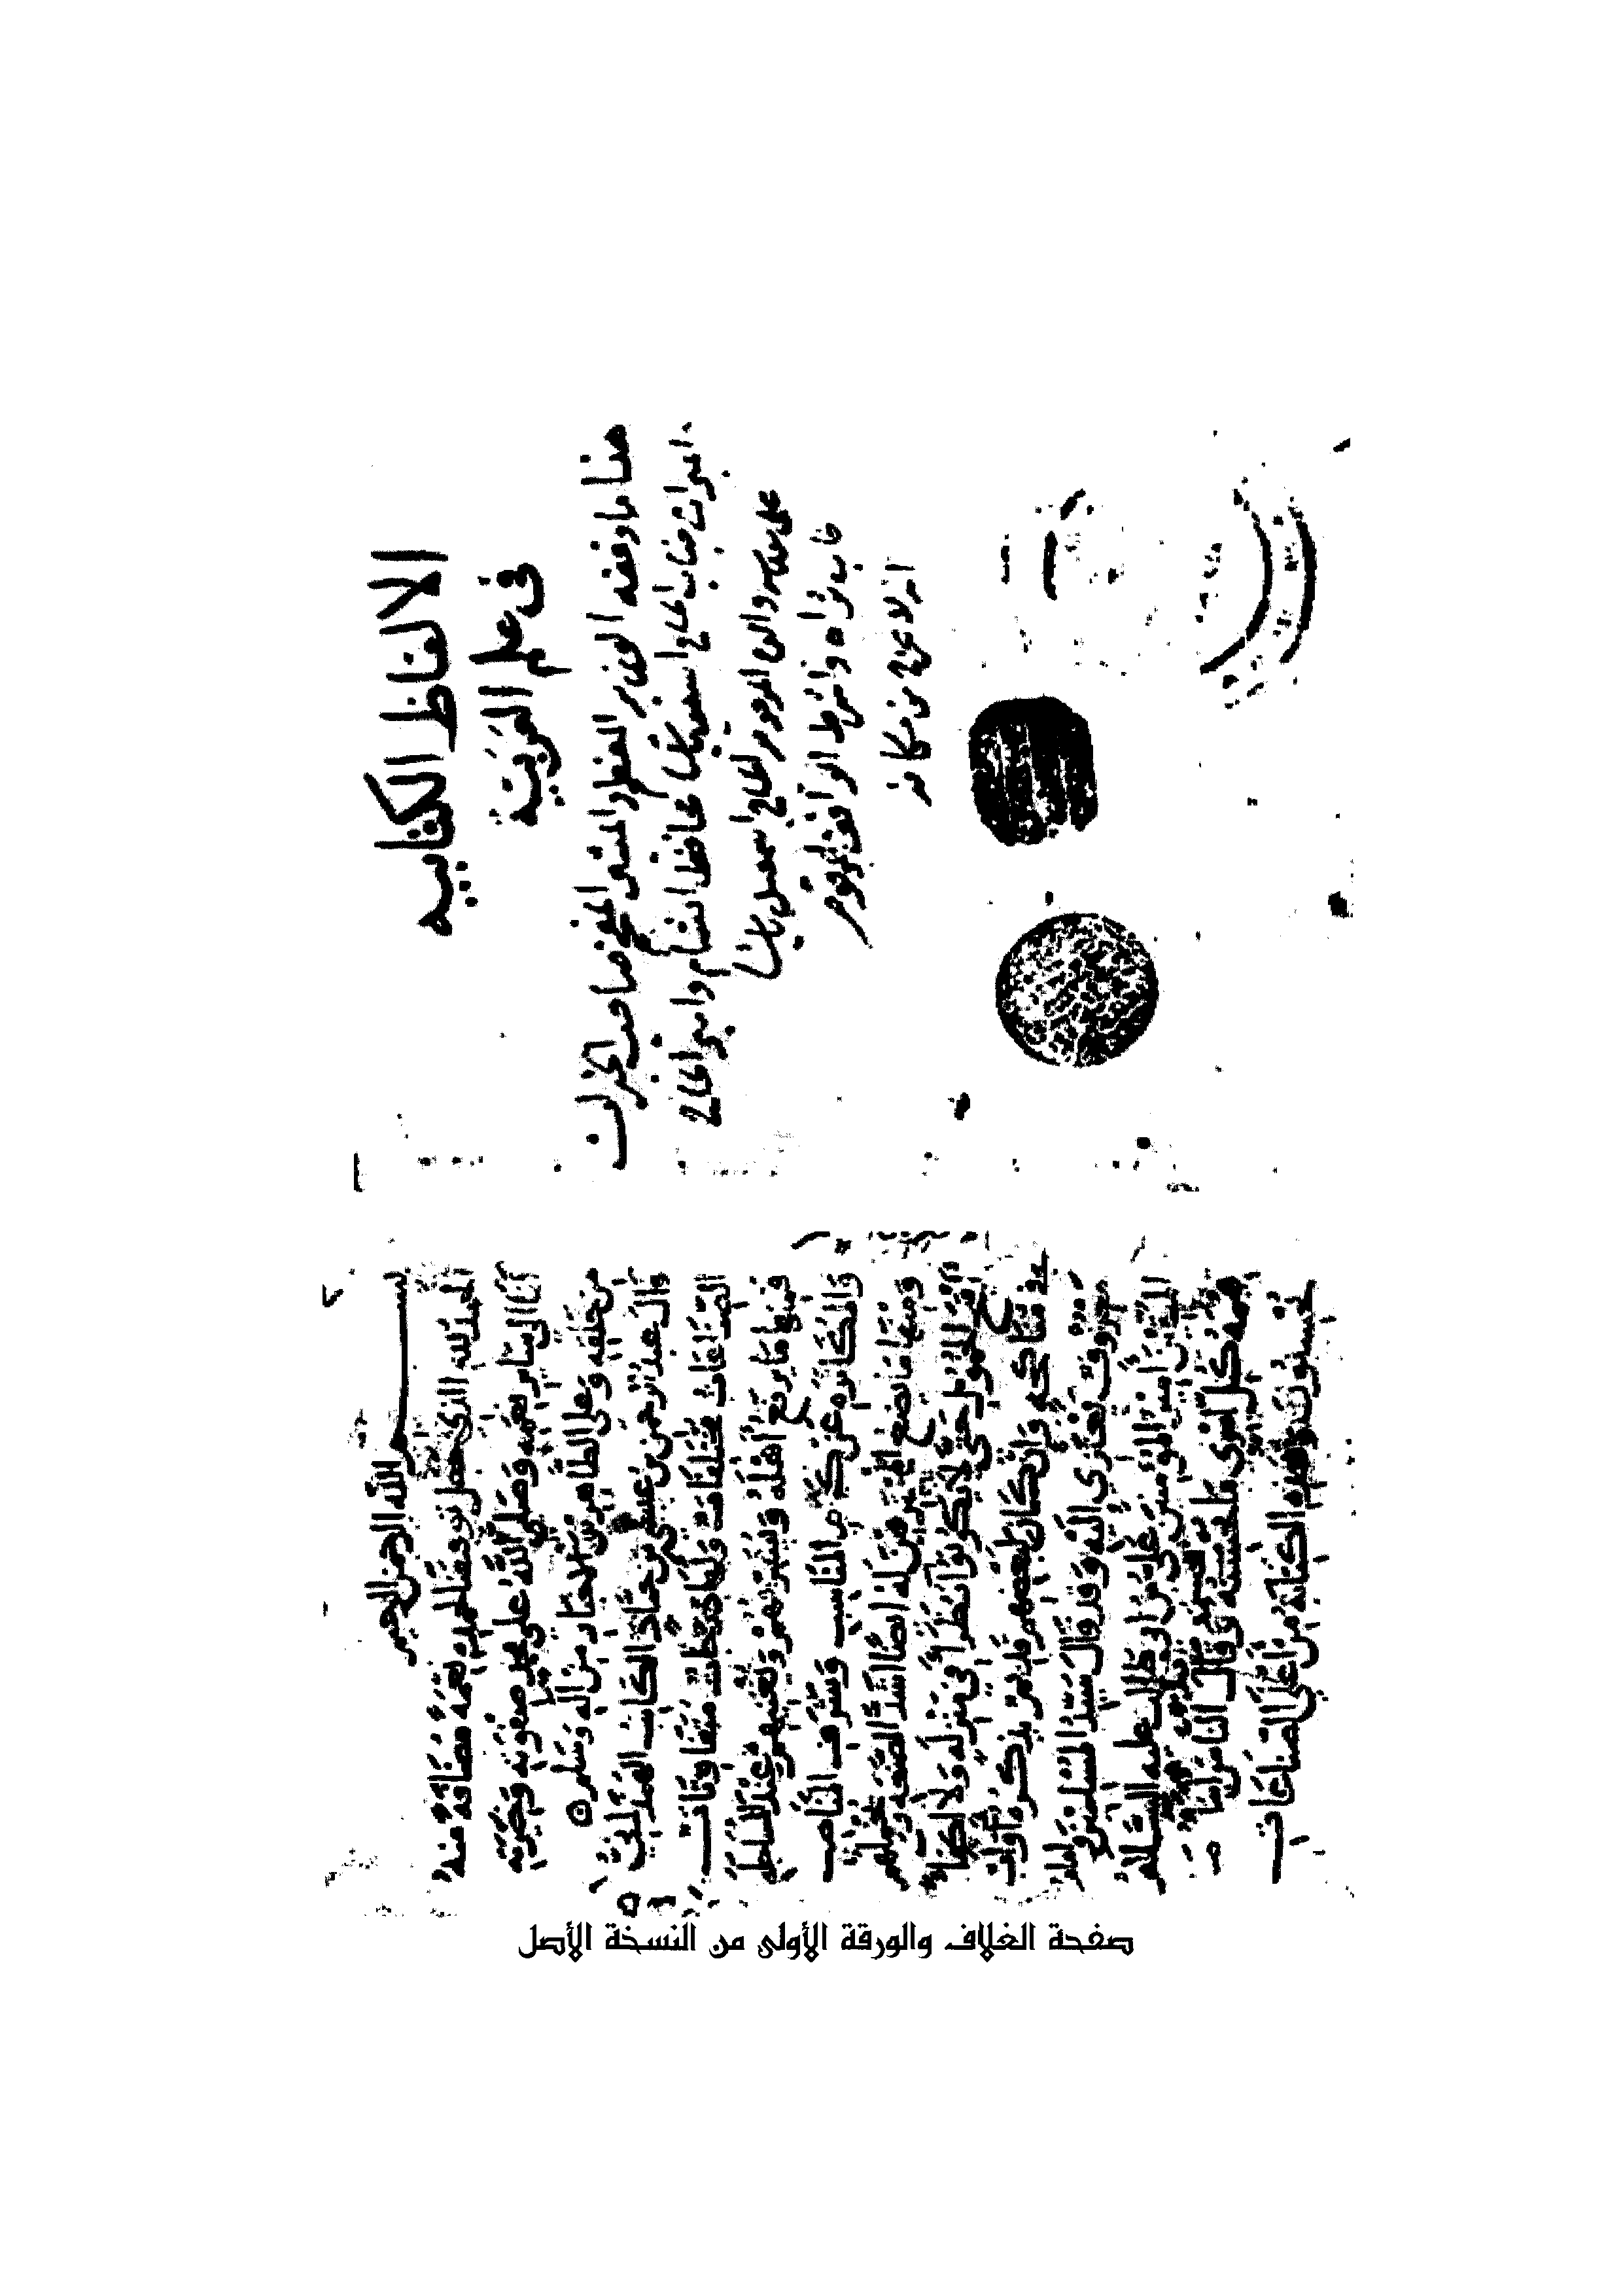 الالفاظ الكتابيه
في علم العربية
هذا ما وقفه الوزير المعظم والمشير المفخم صاحب الخيرات
والمبرات جناب الحاج اسعد باشا محافظ الشام وامير الحاج
على مدرسة والده المرحوم الحاج اسمعيل باشا
طاب ثراه وشرط الواقف المرقوم
انه لا يخرج من مكانه
بسم الله الرحمن الرحيم
الحمد لله الذي جعل توفيقنا لحمده نعمة مضافة منه
الى سائر نعمه وصلى الله على محمد صفوته وخيرته
من خلقه وعلى الطاهرين الاخيار من اله وسلم
قال عبد الرحمن بن عيسى بن حماد الكاتب الهمذاني
الصناعات مختلفات ولها درجات متفاوتات
فمنها ما يرفع اهله ويشرفهم ويغنيهم عند
والمكاثرة عن كرم المناسب وشرف المناصب
ومنها ما يضع
الخمول حتى لا يكونوا نظراء في منزلة ولا
مناكحة وان كان بعضهم
معروف يعتزي اليه وقد قال سيد المسلمين وامام
المتقين امير المؤمنين علي بن ابي طالب عليه السلام
قيمة كل امرئ ما يحسنه وقال الناس ابناء
ما يحسنون وهذه الكتابة من اعلى الصناعات
صفحة الغلاف والورقة الأولى من النسخة الأصل